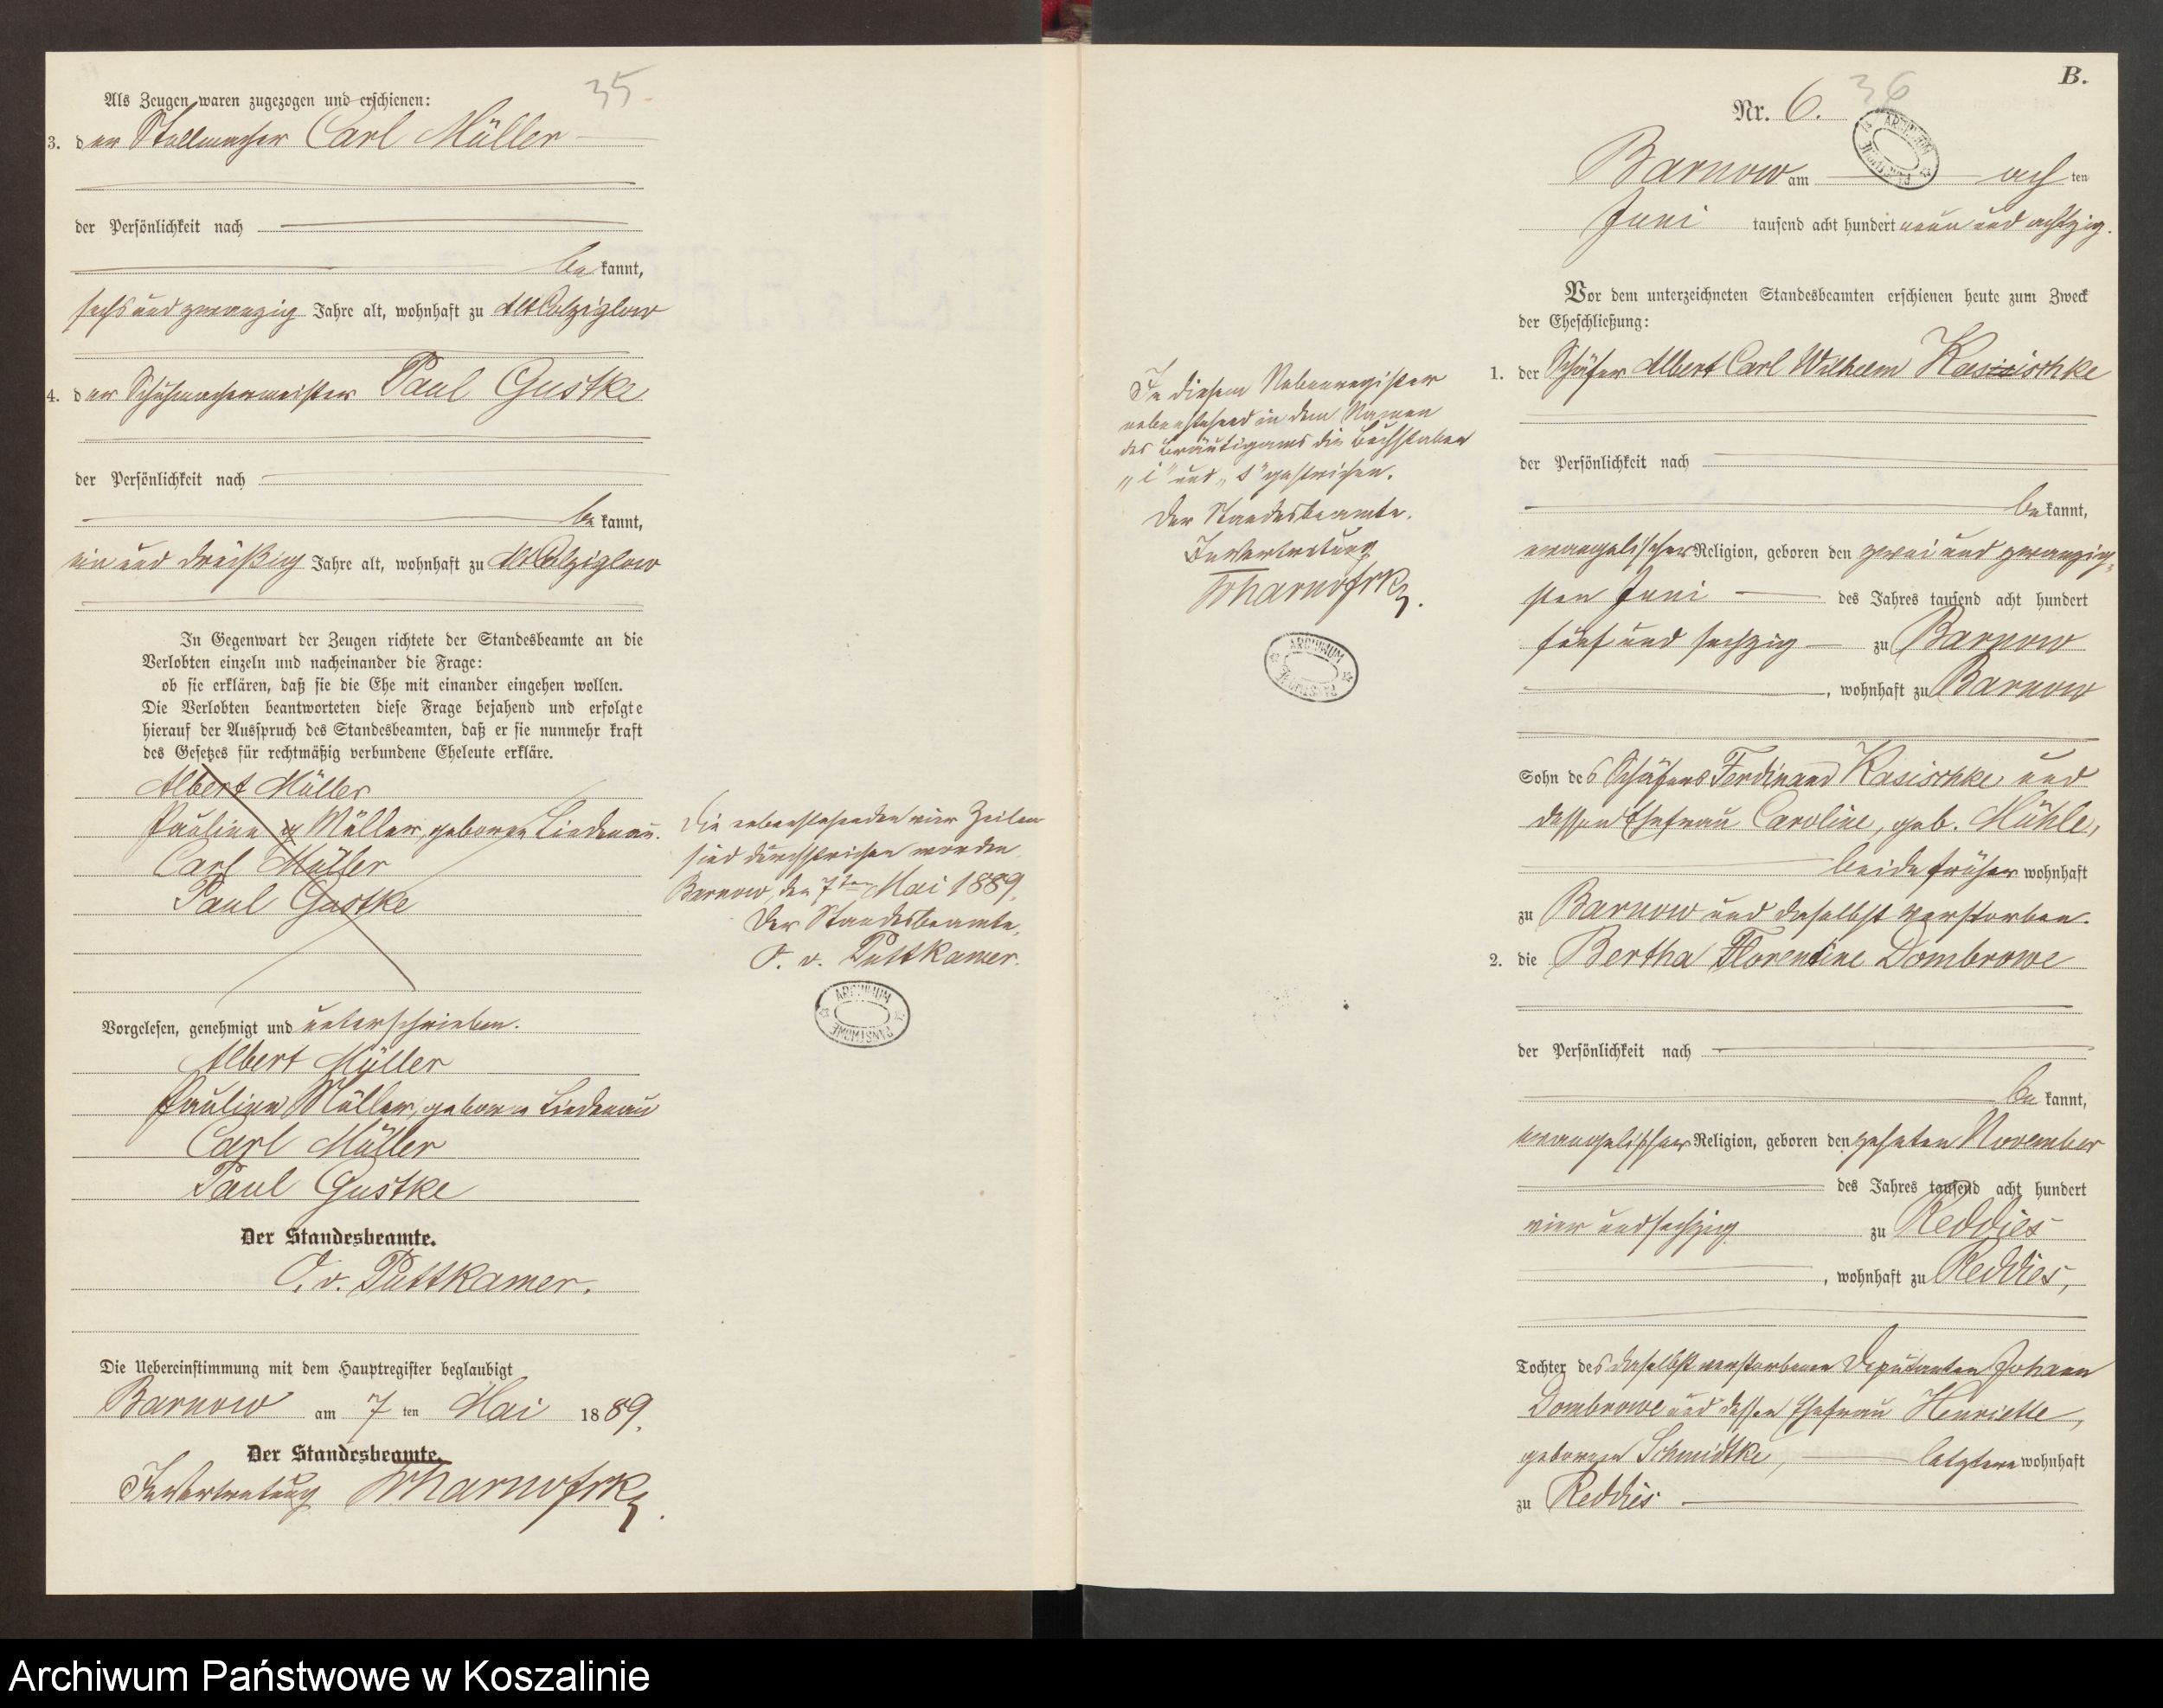 35
Als Zeugen waren zugezogen und erschienen:
3. der Stellmacher Carl Müller
der Persönlichkeit nach
be kannt,
sechs und zwanzig Jahre alt, wohnhaft zu Alt Colziglow
4. der Schuhmachermeister Paul Gustke
der Persönlichkeit nach
be kannt,
ein und dreißig Jahre alt, wohnhaft zu Alt Colziglow
In Gegenwart der Zeugen richtete der Standesbeamte an die
Verlobten einzeln und nacheinander die Frage:
ob sie erklären, daß sie die Ehe mit einander eingehen wollen.
Die Verlobten beantworteten diese Frage bejahend und erfolgte
hierauf der Ausspruch des Standesbeamten, daß er sie nunmehr kraft
des Gesetzes für rechtmäßig verbundene Eheleute erkläre.
Albert Müller
Pauline g Müller, geborene Liedenau.
Carl Müller
Paul Gustke
Vorgelesen, genehmigt und unterschrieben.
Albert Müller
Pauline Müller, geborne Liedenau
Carl Müller
Paul Gustke
Der Standesbeamte.
O. v. Puttkamer.
Die Uebereinstimmung mit dem Hauptregister beglaubigt
Barnow am 7 ten Mai 1889.
Der Standesbeamte.
In Vertretung
Die nebenstehenden vier Zeilen
sind durchstrichen worden
Barnow, den 7ten Mai 1889.
Der Standesbeamte.
O. v. Puttkamer.
ARCHIWUM PAŃSTWOWE
In diesem Nebenregister
nebenstehend in dem Namen
des Bräutigams die Buchstaben
„i" und „s" gestrichen.
Der Standesbeamte.
In Vertretung
ARCHIWUM PAŃSTWOWE
B.
Nr. 6. 36
ARCHIWUM PAŃSTWOWE
Barnow am ach ten
Juni tausend acht hundert neun und achtzig.
Vor dem unterzeichneten Standesbeamten erschienen heute zum Zweck
der Eheschließung:
1. der Schäfer Albert Carl Wilhelm Kasisischke
der Persönlichkeit nach
be kannt,
evangelischer Religion, geboren den zwei und zwanzig-
sten Juni des Jahres tausend acht hundert
fünf und sechzig zu Barnow
, wohnhaft zu Barnow
Sohn des Schäfers Ferdinand Kasischke und
dessen Ehefrau Caroline, geb. Mühle,
beide früher wohnhaft
zu Barnow und daselbst verstorben.
2. die Bertha Florentine Dombrowe
der Persönlichkeit nach
be kannt,
evangelischer Religion, geboren den zehnten November
des Jahres tausend acht hundert
vier und sechzig zu Reddies
, wohnhaft zu Reddies,
Tochter des daselbst verstorbenen Deputanten Johann
Dombrowe und dessen Ehefrau Henriette,
geborenen Schmidtke, letztere wohnhaft
zu Reddies
Archiwum Państwowe w Koszalinie